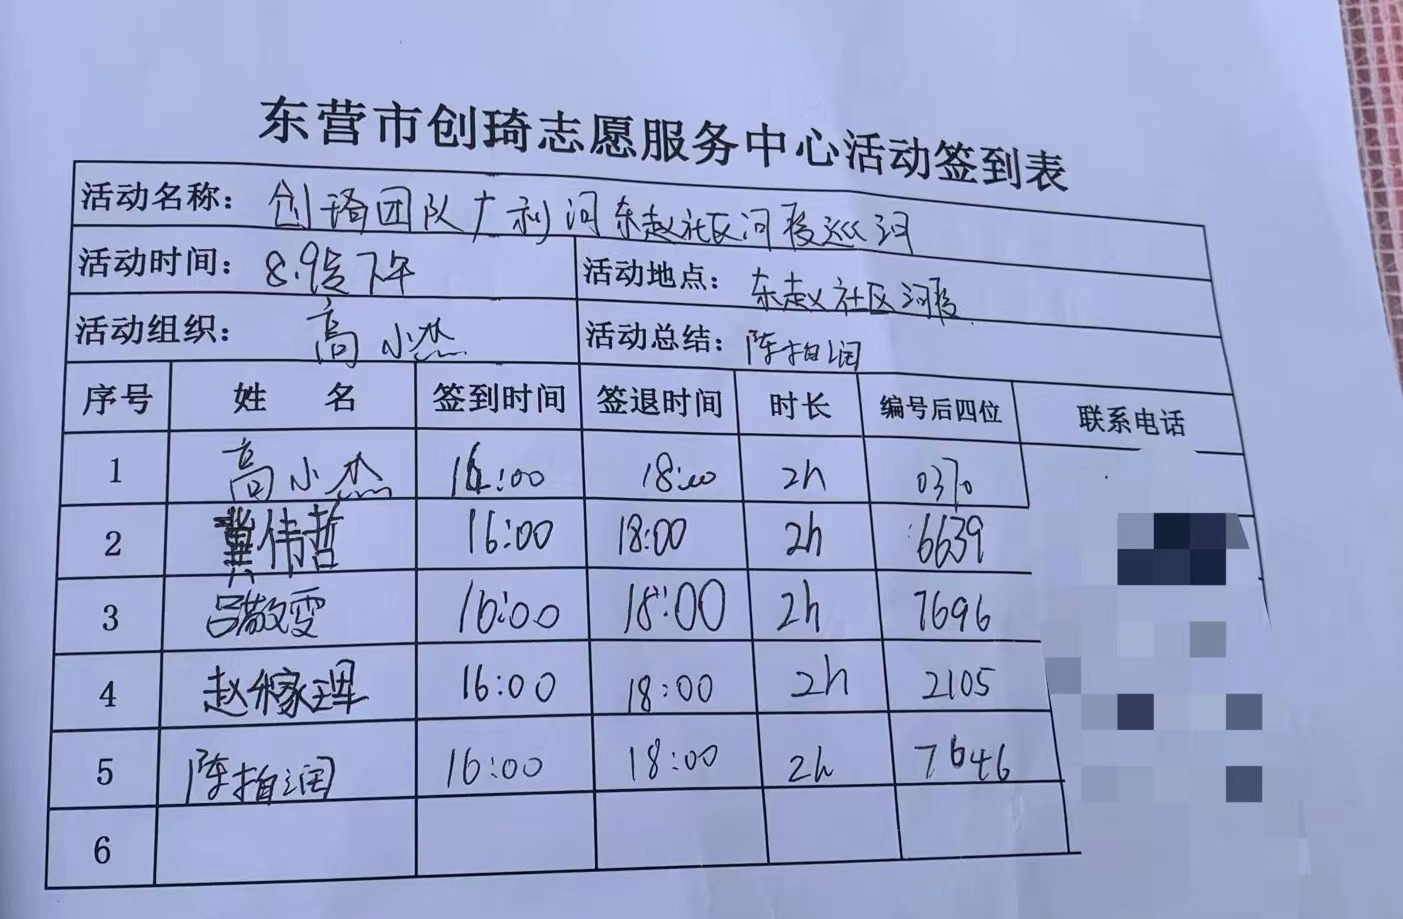 东营市创琦志愿服务中心活动签到表
活动名称：创琦团队广利河东赵社区河段巡河
活动时间：8.9号下午 活动地点：东赵社区河段
活动组织：高小杰 活动总结：陈柏润
序号 姓 名 签到时间 签退时间 时长 编号后四位 联系电话
1 高小杰 16:00 18:00 2h 0370
2 冀伟哲 16:00 18:00 2h 6639
3 吕敬雯 16:00 18:00 2h 7696
4 赵稼琿 16:00 18:00 2h 2105
5 陈柏润 16:00 18:00 2h 7646
6